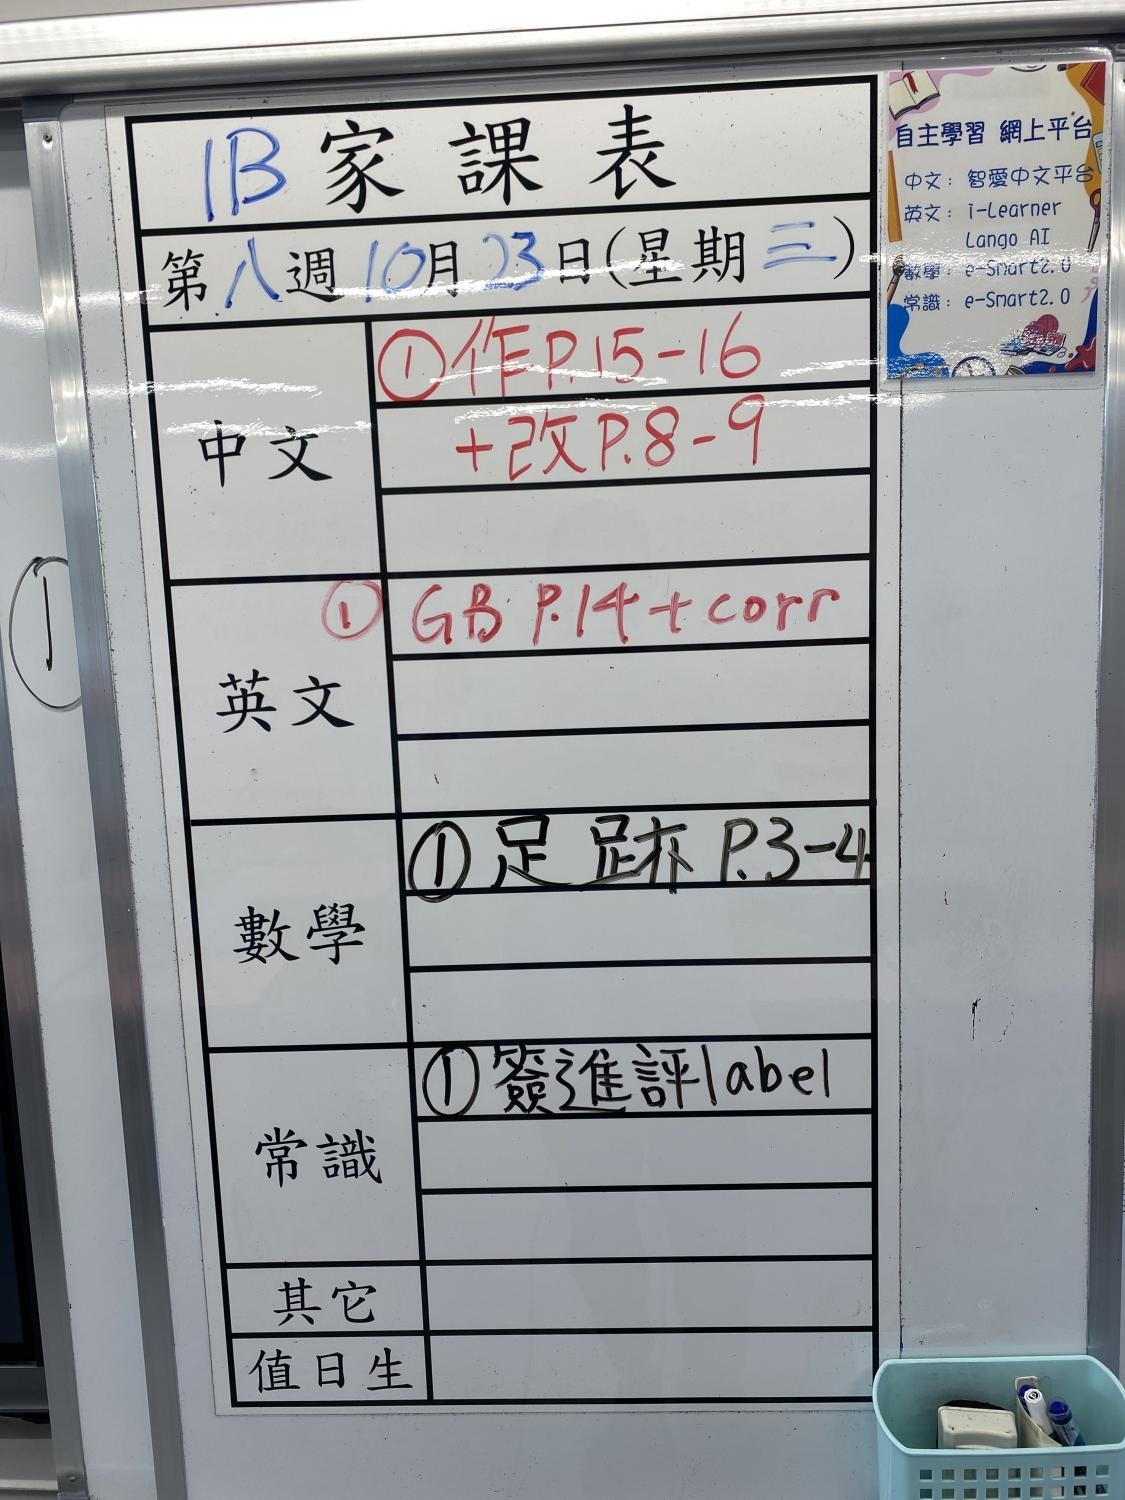 1B 家課表
第八週10月23日(星期三)
中文
①作P.15-16
+改P.8-9
英文
① GB P.14+corr
數學
①足跡 P.3-4
常識
①簽進評label
其它
值日生
自主學習 網上平台
中文: 智愛中文平台
英文: i-Learner
Lango AI
數學: e-Smart2.0
常識: e-Smart2.0
①